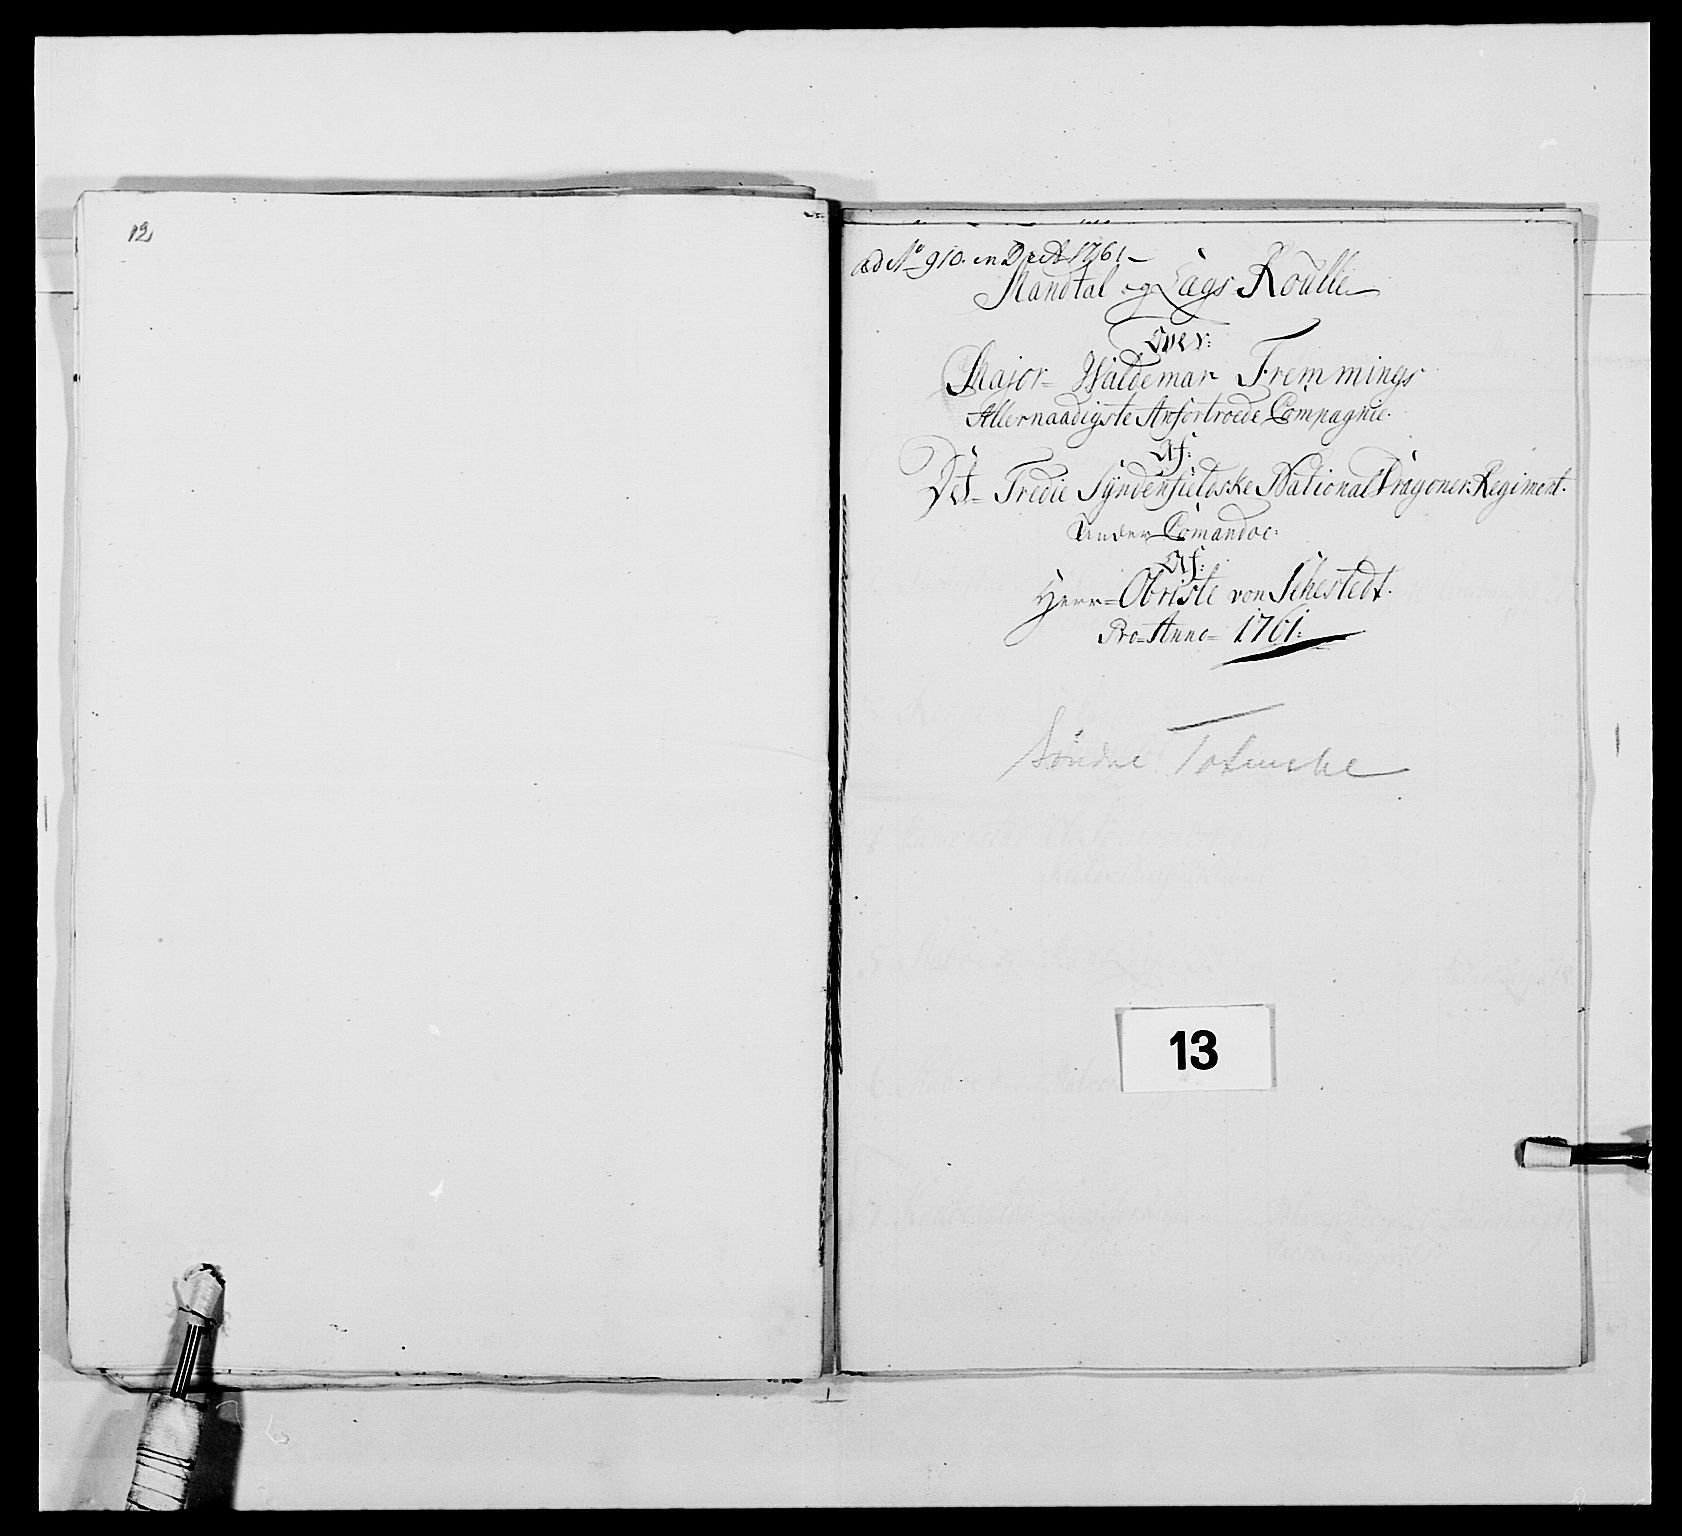 12
ad No 910. in Dect 1761 –
Mandtal og Lægs Roulle
Over:
Major = Waldemar Flemmings
Allernaadigste Anfortroede Compagnie.
Af:
Det = Tredie Syndenfieldske National Dragoner Regiment.
Under Comandoe:
Af:
Herr = Obriste von Schestedt.
Pro = Anno = 1761:
Søndre
13